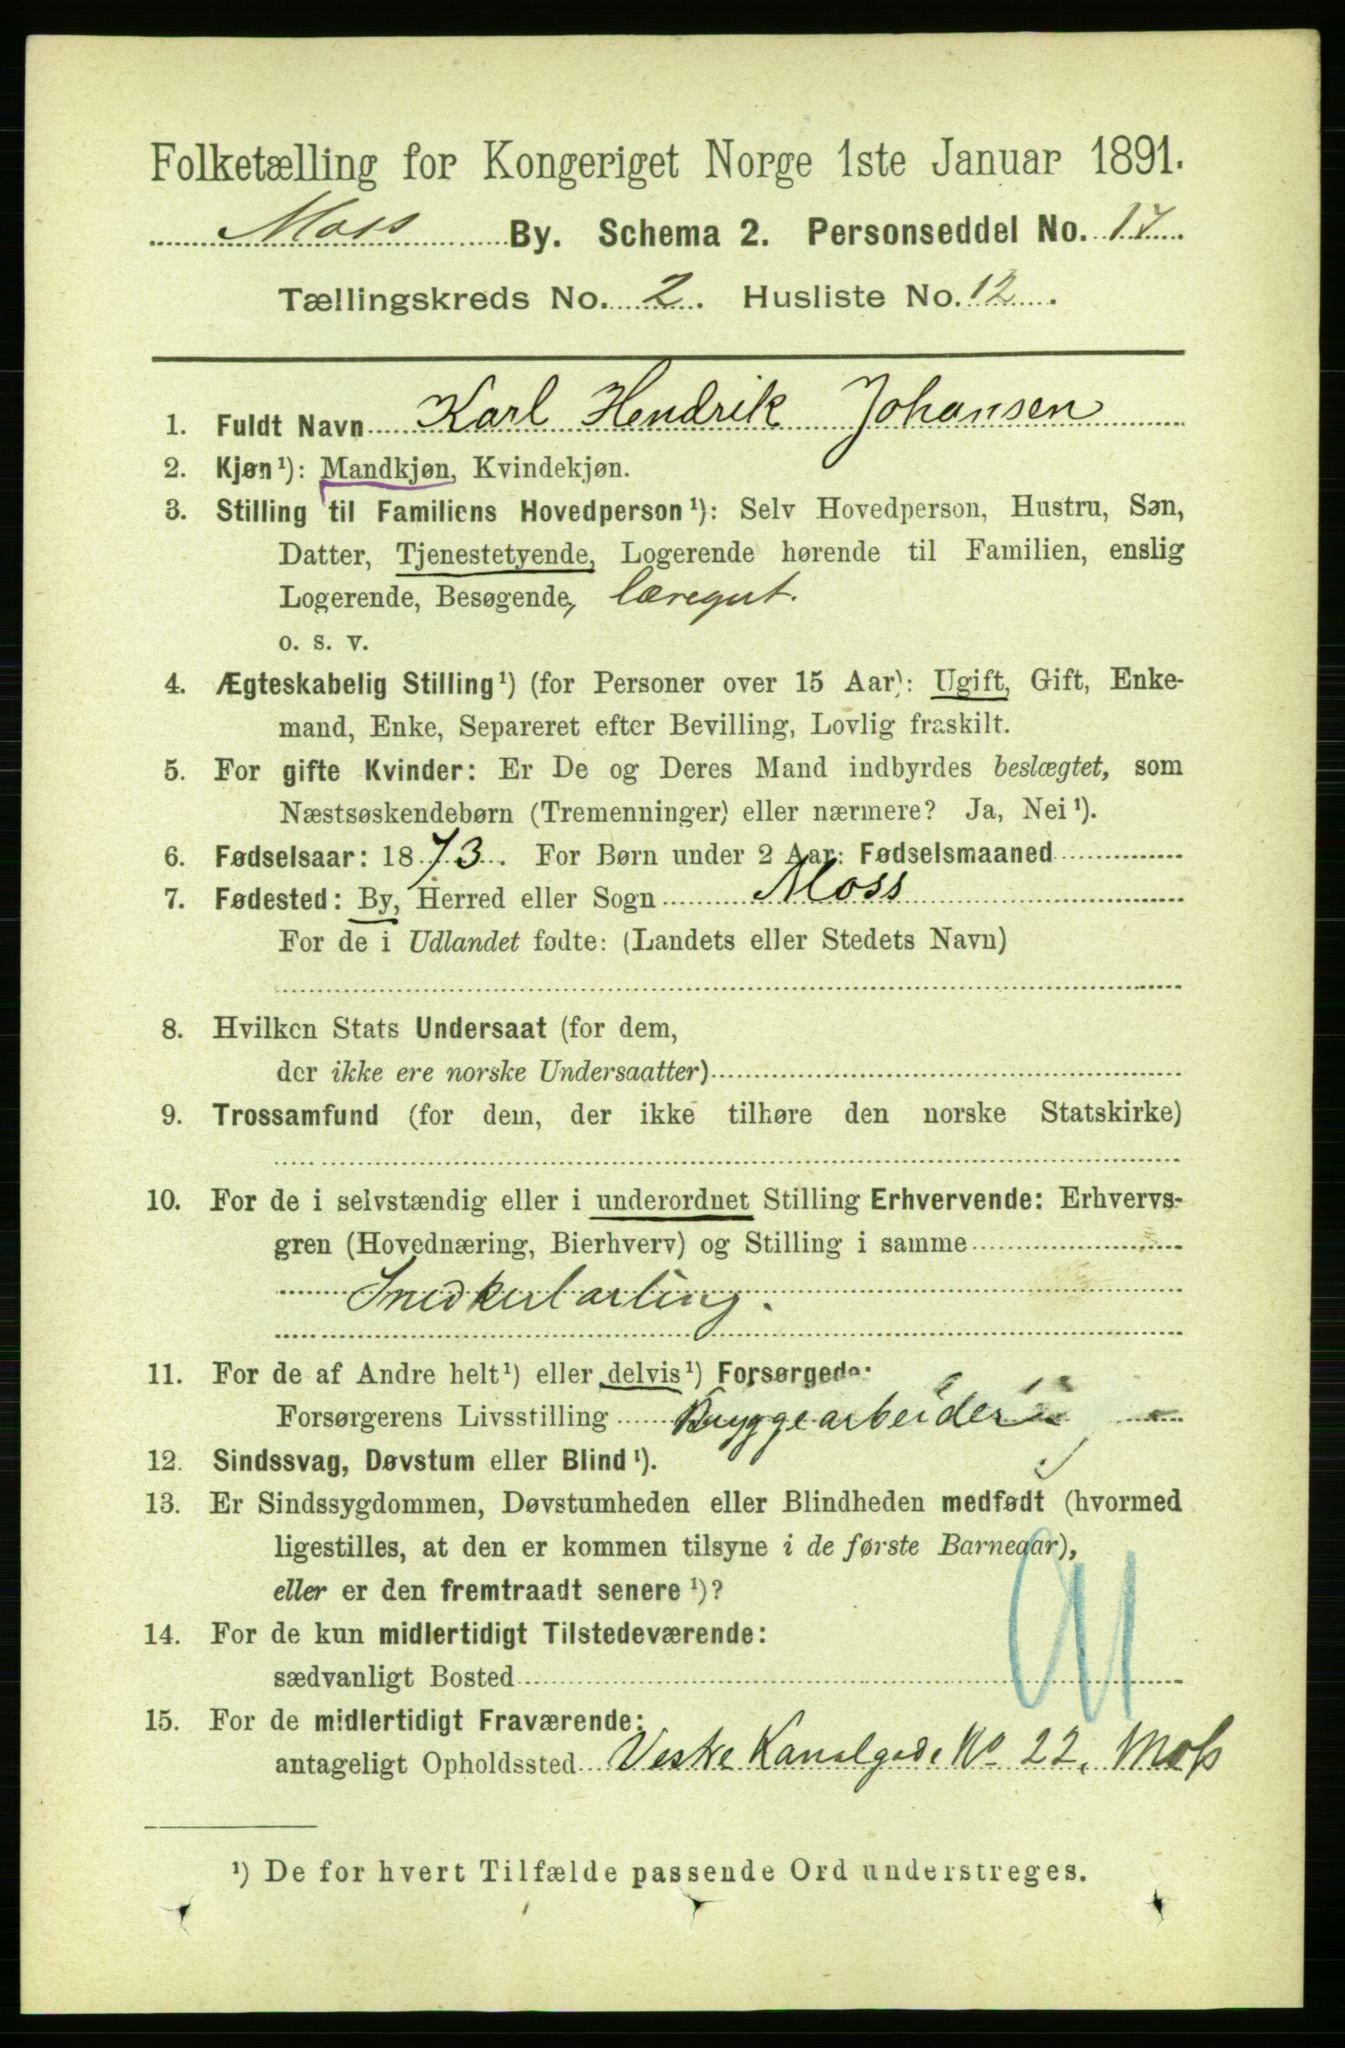 Folketælling for Kongeriget Norge 1ste Januar 1891.
Moss By. Schema 2. Personseddel No. 17
Tællingskreds No. 2. Husliste No. 12.
1. Fuldt Navn Karl Hendrik Johansen
2. Kjøn¹): Mandkjøn, Kvindekjøn.
3. Stilling til Familiens Hovedperson¹): Selv Hovedperson, Hustru, Søn,
Datter, Tjenestetyende, Logerende hørende til Familien, enslig
Logerende, Besøgende, læregut.
o. s. v.
4. Ægteskabelig Stilling¹) (for Personer over 15 Aar): Ugift, Gift, Enke-
mand, Enke, Separeret efter Bevilling, Lovlig fraskilt.
5. For gifte Kvinder: Er De og Deres Mand indbyrdes beslægtet, som
Næstsøskendebørn (Tremenninger) eller nærmere? Ja, Nei¹).
6. Fødselsaar: 1873. For Børn under 2 Aar: Fødselsmaaned
7. Fødested: By, Herred eller Sogn Moss
For de i Udlandet fødte: (Landets eller Stedets Navn)
8. Hvilken Stats Undersaat (for dem,
der ikke ere norske Undersaatter)
9. Trossamfund (for dem, der ikke tilhøre den norske Statskirke)
10. For de i selvstændig eller i underordnet Stilling Erhvervende: Erhvervs-
gren (Hovednæring, Bierhverv) og Stilling i samme
Snedkerlærling.
11. For de af Andre helt¹) eller delvis¹) Forsørgede:
Forsørgerens Livsstilling Bryggearbeider
12. Sindssvag, Døvstum eller Blind¹).
13. Er Sindssygdommen, Døvstumheden eller Blindheden medfødt (hvormed
ligestilles, at den er kommen tilsyne i de første Barneaar),
eller er den fremtraadt senere¹)?
14. For de kun midlertidigt Tilstedeværende:
sædvanligt Bosted
15. For de midlertidigt Fraværende:
antageligt Opholdssted Vestre Kanalgade No 22. Moss
¹) De for hvert Tilfælde passende Ord understreges.